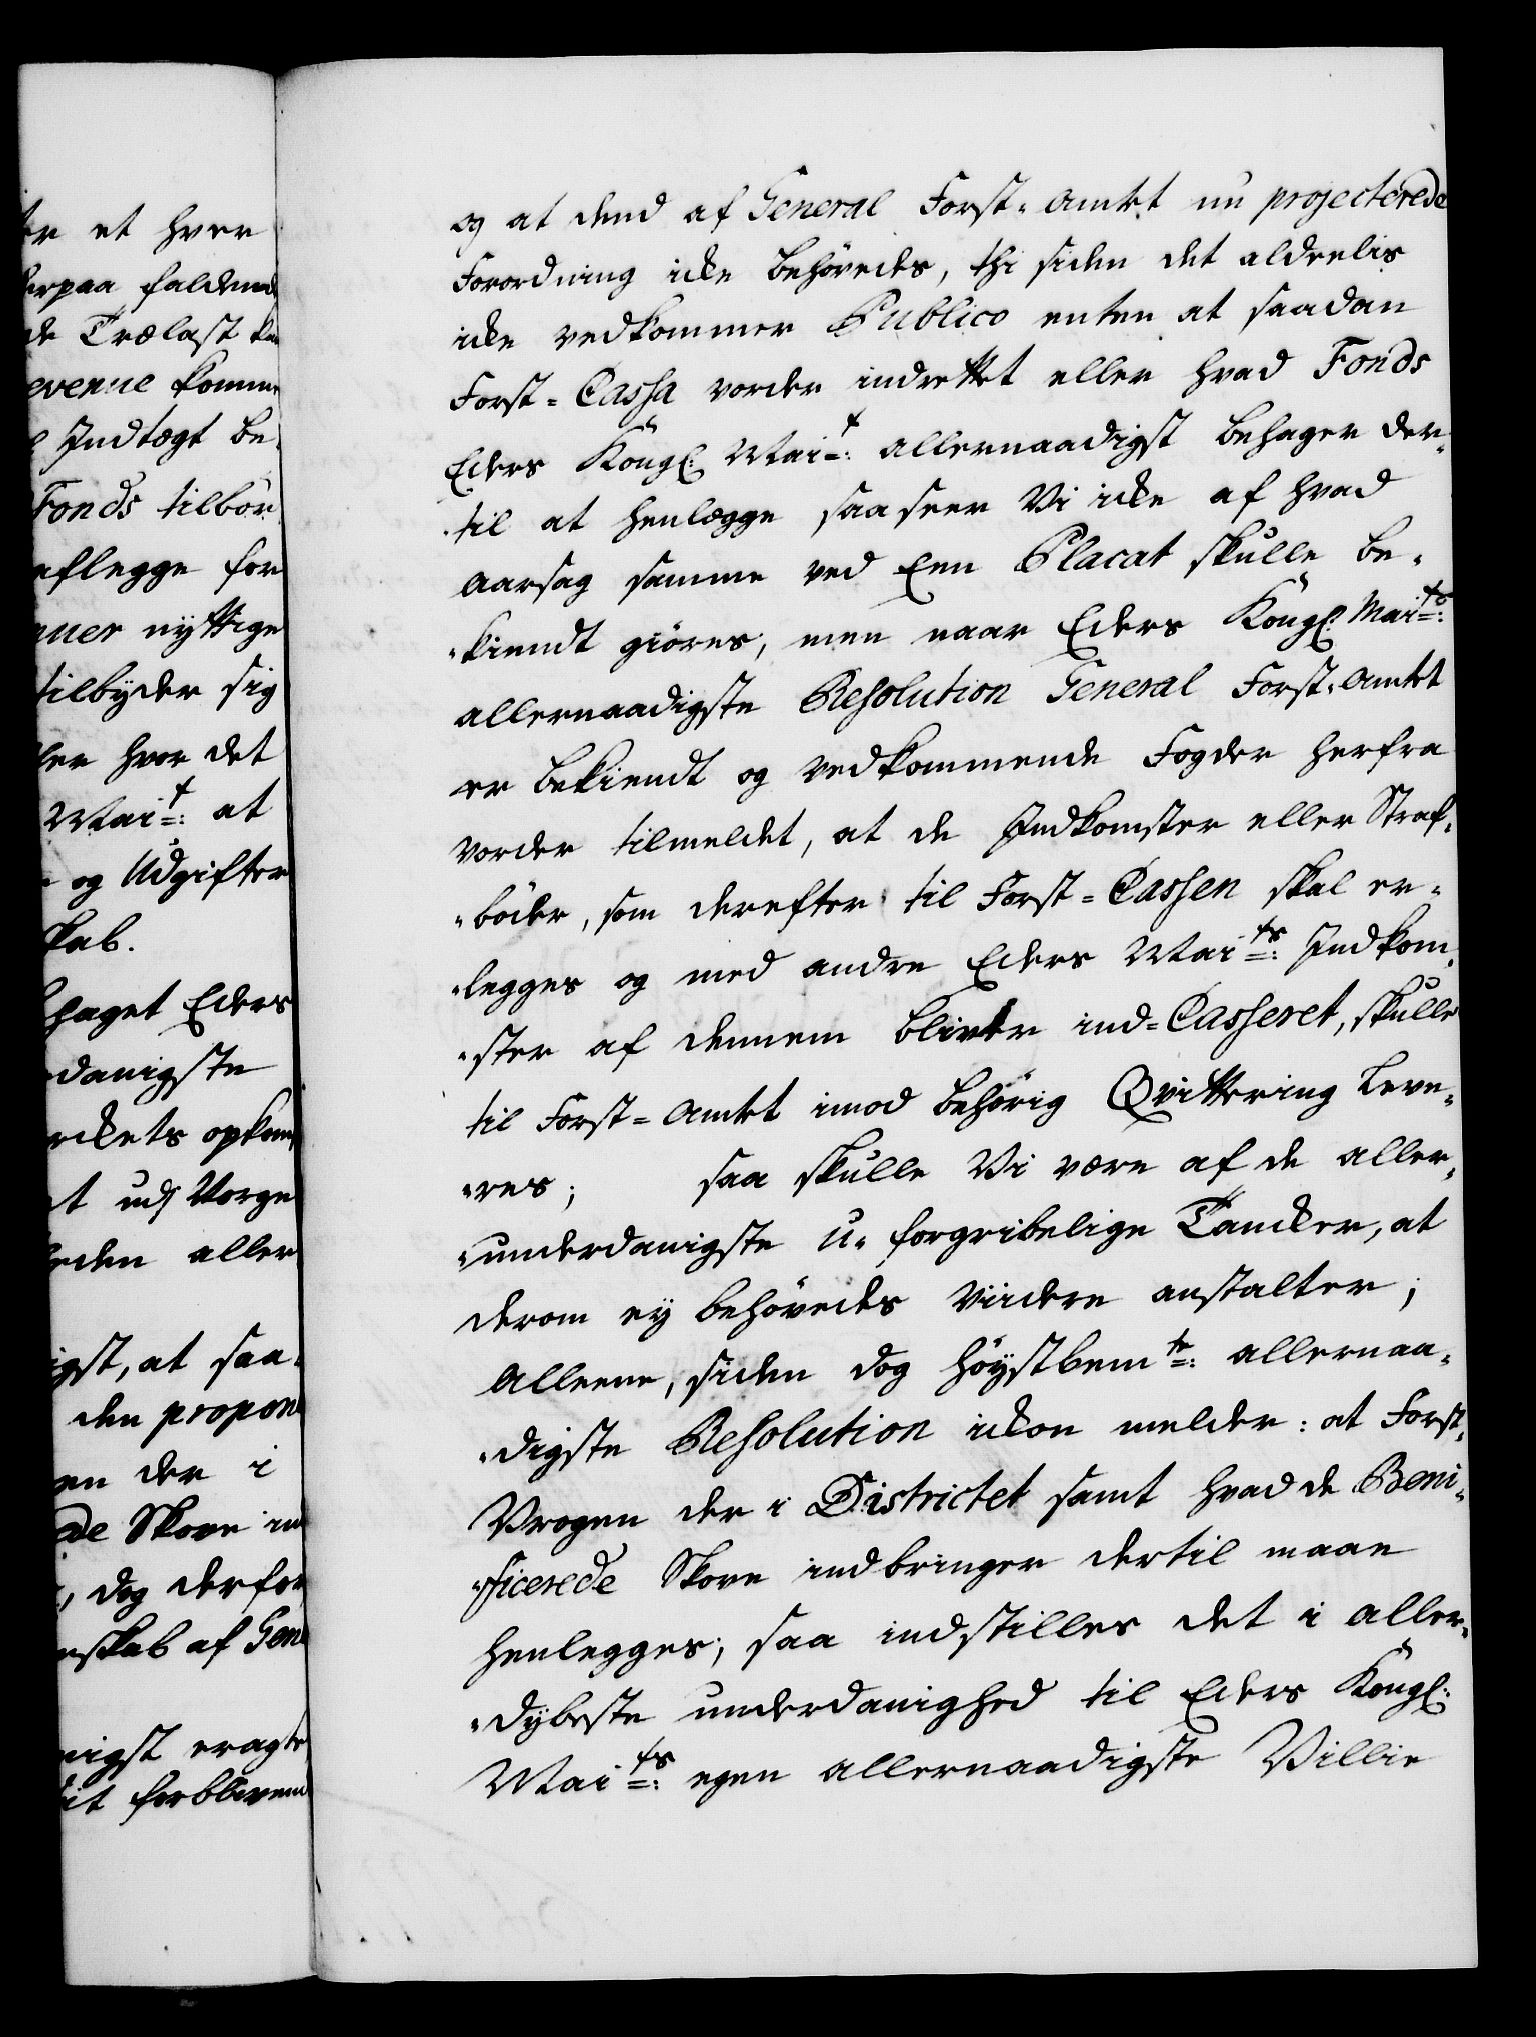 tr et hver
erpaa faldend
de Trælast ka
evenue komme
Indtægt be¬
Fonds tilbør
aflegge for
uer nyttige
tilbyder sig
ler hvor det
Maitt: at
og Udgifter
kab.
haget Eders
danigste
rckets opkom
t udj Norge
heden aller
igst, at saa¬
den propon
en der i
ede Skove in
, dog derfor
nskab af Gen
nigst eragte
it forblivend
og at dend af General Forst-Amtet nu projecterede
Forordning icke behövedes, thi siden det aldeelis
icke vedkommer Publico enten at saadan
Forst-Cassa vorder indrettet eller hvad Fonds
Eders Kongl: Mait: allernaadigst behager der-
til at henlægge saa seer Vi icke af hvad
aarsag samme ved Een Placat skulle be-
kiendt giöres, men naar Eders Kongl: Maits:
allernaadigste Resolution General Forst-Amtet
er bekiendt og vedkommende Fogder herfra
vorder tilmeldet, at de Indkomster eller Straf-
böder, som derefter til Forst-Cassen skal er-
legges og med andre Eders Maits: Indkom-
ster af dennem bliver ind-Casseret, skulle
til Forst-Amtet imod behörig Qvittering leve-
res; saa skulle Vi være af de aller-
underdanigste u-forgribelige Tancker, at
derom ey behövedes viidere anstalter;
Alleene, siden dog höystbemte: allernaa-
digste Resolution ickon melder: at Forst-
Vrogen der i Districtet samt hvad de Beni-
ficerede Skove indbringer dertil maae
henlegges; saa indstilles det i aller-
dybeste underdanighed til Eders Kongl:
Maits: egen allernaadigste Villie